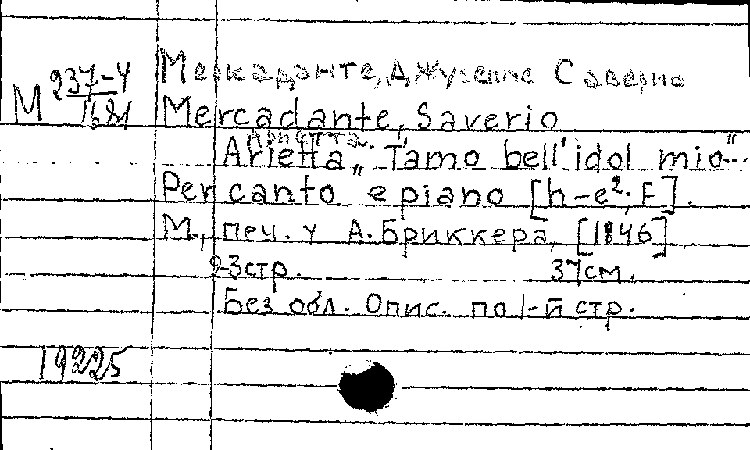 М 237-4/1681
Меркаданте, Джузеппе Саверио
Mercadante, Saverio
Ариетта.
Arietta „T'amo bell'idol mio"...
Per canto e piano [h-e²; F].
М., печ. у А. Бриккера, [1846]
2-3 стр. 37 см.
Без обл. Опис. по 1-й стр.
19225